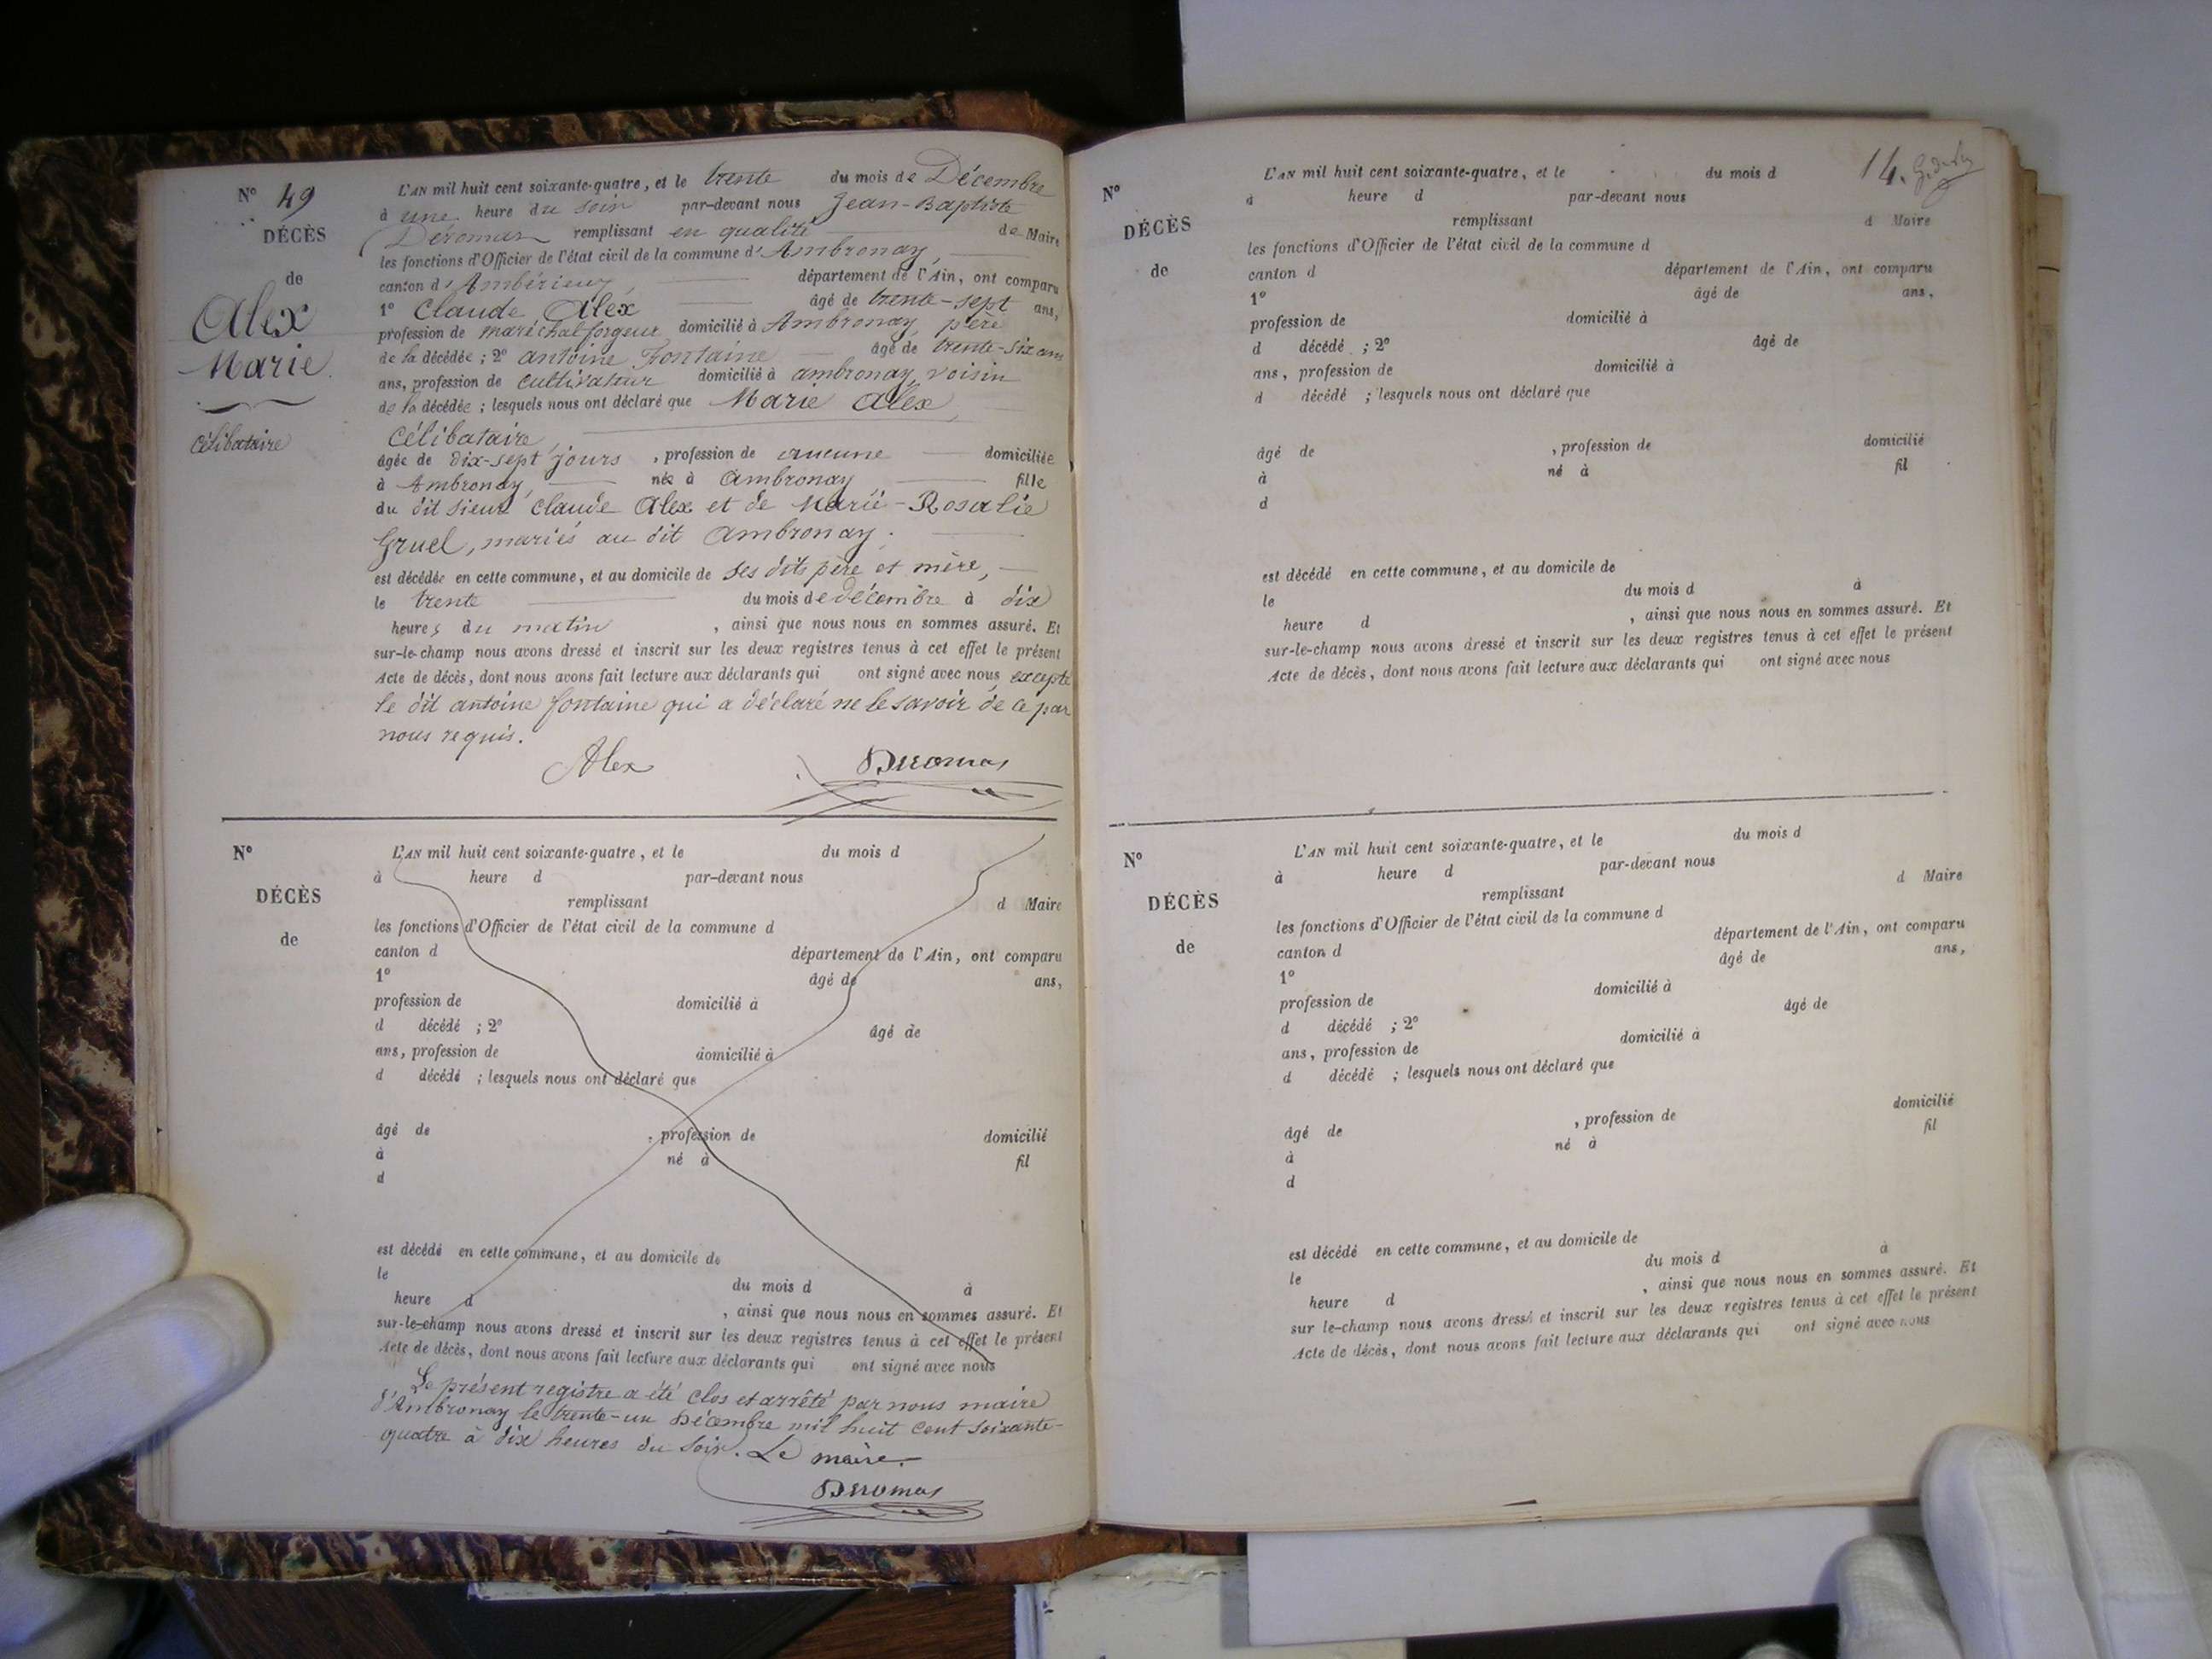 N° 49
DÉCÈS
de
Alex
Marie
célibataire
L'AN mil huit cent soixante-quatre, et le trente du mois de Décembre
à une heure du soir par-devant nous Jean-Baptiste
Déromas remplissant en qualité de Maire
les fonctions d'Officier de l'état civil de la commune d'Ambronay,
canton d'Ambérieux, département de l'Ain, ont comparu
1° Claude Alex âgé de trente-sept ans,
profession de maréchal forgeur domicilié à Ambronay, père
de la décédée ; 2° antoine Fontaine âgé de trente-six ans
ans, profession de cultivateur domicilié à ambronay, voisin
de la décédée ; lesquels nous ont déclaré que Marie Alex,
Célibataire,
âgée de dix-sept jours , profession de aucune domiciliée
à Ambronay, née à Ambronay fille
du dit sieur Claude Alex et de Marie-Rosalie
Gruel, mariés au dit Ambronay.
est décédée en cette commune, et au domicile de ses dits père et mère,
le trente du mois de décembre à dix
heures du matin , ainsi que nous nous en sommes assuré. Et
sur-le-champ nous avons dressé et inscrit sur les deux registres tenus à cet effet le présent
Acte de décès, dont nous avons fait lecture aux déclarants qui ont signé avec nous excepté
le dit antoine fontaine qui a déclaré ne le savoir de ce par
nous requis.
Alex Deromas
N°
DÉCÈS
de
L'AN mil huit cent soixante-quatre, et le du mois d
à heure d par-devant nous
remplissant d Maire
les fonctions d'Officier de l'état civil de la commune d
canton d département de l'Ain, ont comparu
1° âgé de ans,
profession de domicilié à
d décédé ; 2° âgé de
ans, profession de domicilié à
d décédé ; lesquels nous ont déclaré que
âgé de , profession de domicilié
à né à fil
d
est décédé en cette commune, et au domicile de
le du mois d à
heure d , ainsi que nous nous en sommes assuré. Et
sur-le-champ nous avons dressé et inscrit sur les deux registres tenus à cet effet le présent
Acte de décès, dont nous avons fait lecture aux déclarants qui ont signé avec nous
Le présent registre a été clos et arrêté par nous maire
d'Ambronay le trente-un Décembre mil huit cent soixante-
quatre à dix heures du soir. Le maire.
Deromas
14.
N°
DÉCÈS
de
L'AN mil huit cent soixante-quatre, et le du mois d
à heure d par-devant nous
remplissant d Maire
les fonctions d'Officier de l'état civil de la commune d
canton d département de l'Ain, ont comparu
1° âgé de ans,
profession de domicilié à
d décédé ; 2° âgé de
ans, profession de domicilié à
d décédé ; lesquels nous ont déclaré que
âgé de , profession de domicilié
à né à fil
d
est décédé en cette commune, et au domicile de
le du mois d à
heure d , ainsi que nous nous en sommes assuré. Et
sur-le-champ nous avons dressé et inscrit sur les deux registres tenus à cet effet le présent
Acte de décès, dont nous avons fait lecture aux déclarants qui ont signé avec nous
N°
DÉCÈS
de
L'AN mil huit cent soixante-quatre, et le du mois d
à heure d par-devant nous
remplissant d Maire
les fonctions d'Officier de l'état civil de la commune d
canton d département de l'Ain, ont comparu
1° âgé de ans,
profession de domicilié à
d décédé ; 2° âgé de
ans, profession de domicilié à
d décédé ; lesquels nous ont déclaré que
âgé de , profession de domicilié
à né à fil
d
est décédé en cette commune, et au domicile de
le du mois d à
heure d , ainsi que nous nous en sommes assuré. Et
sur le-champ nous avons dressé et inscrit sur les deux registres tenus à cet effet le présent
Acte de décès, dont nous avons fait lecture aux déclarants qui ont signé avec nous